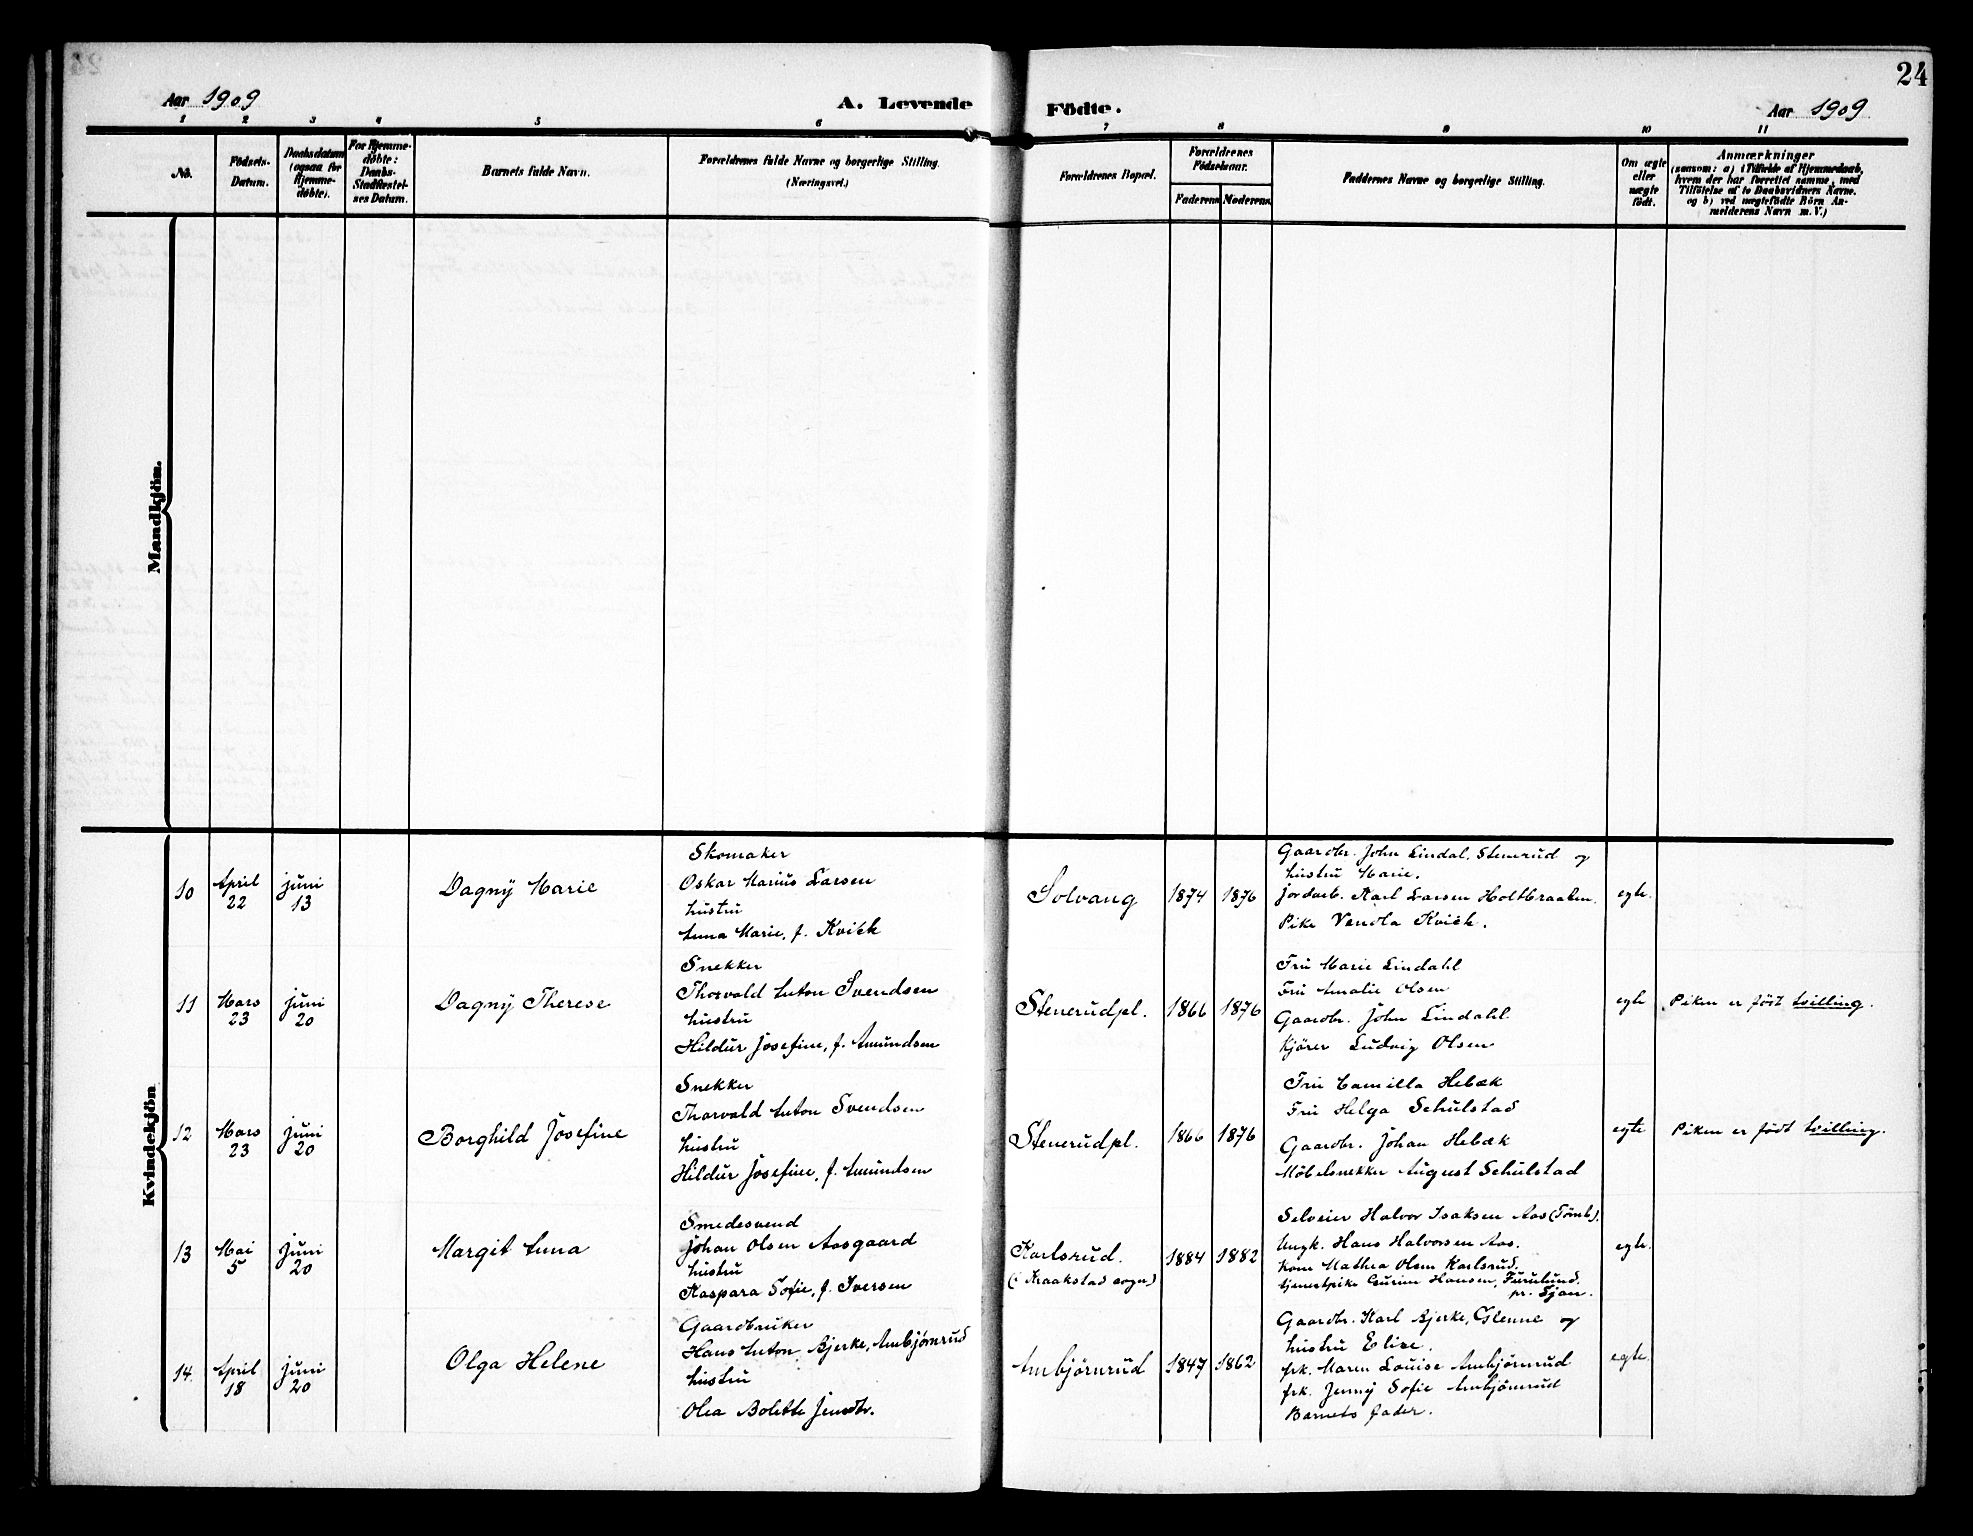 24
Aar 1909
A. Levende Födte.
Aar 1909
1 2 3 4 5 6 7 8 9 10 11
No.
Födsels-
Datum.
Daabsdatum
(ogsaa for
Hjemme-
döbte).
For Hjemme-
döbte:
Daabs-
Stadfæstel-
ses Datum.
Barnets fulde Navn.
Forældrenes fulde Navne og borgerlige Stilling.
(Næringsvei.)
Forældrenes Bopæl.
Forældrenes
Födselsaar.
Faderens
Moderens
Faddernes Navne og borgerlige Stilling.
Om ægte
eller
uægte
födt.
Anmærkninger
(saasom: a) i Tilfælde af Hjemmedaab,
hvem der har forrettet samme, med
Tilföielse af to Daabsvidners Navne.
og b) ved uægtefödte Börn An-
melderens Navn m. V.)
Mandkjön.
Kvindekjön
10
April
22
Juni
13
Dagny Marie
Skomaker
Oskar Marius Larsen
hustru
Anna Marie, f. Kvick
Solvang
1874
1876
Gaardbr. John Lindal, Stenerud og
hustru Marie.
Jordarb. Karl Larsen Holtbraaten.
Pike Vanda Kvick.
egte.
11
Mars
23
Juni
20
Dagny Therese
Snekker
Thorvald Anton Svendsen
hustru
Hildur Josefine, f. Amundsen
Stenerudpl.
1866
1876
Fru Marie Lindahl
Fru Amalie Olsen
Gaardbr. John Lindahl.
Kjörer Ludvig Olsen
egte
Piken er född tvilling.
12
Mars
23
Juni
20
Borghild Josefine
Snekker
Thorvald Anton Svendsen
hustru
Hildur Josefine, f. Amundsen
Stenerudpl.
1866
1876
Fru Camilla Hebæk
Fru Helga Schulstad
Gaardbr. Johan Hebæk
Möbelsnekker August Schulstad
egte
Piken er född tvilling.
13
Mai
5
Juni
20
Margit Anna
Smedesvend
Johan Olsen Aasgaard
hustru
Kaspara Sofie, f. Iversen
Karlsrud.
(i Kraakstad sogn)
1884
1882
Selveier Halvor Isaksen Aas (Tömb).
Ungk. Hans Halvorsen Aas.
Kone Mathea Olsen Karlsrud.
tjenestpike Gurine Hansen, Furulund.
pr. Ljan.
egte.
14.
April
18
Juni
20
Olga Helene
Gaardbruker
Hans Anton Bjerke, Ambjörnrud
hustru
Olea Bolette Jensdtr.
Ambjörnrud
1847
1862
Gaardbr. Karl Bjerke, Glenne og
hustru Elise.
frk. Maren Louise Ambjörnrud
frk. Jenny Sofie Ambjörnrud
Barnets fader.
egte.